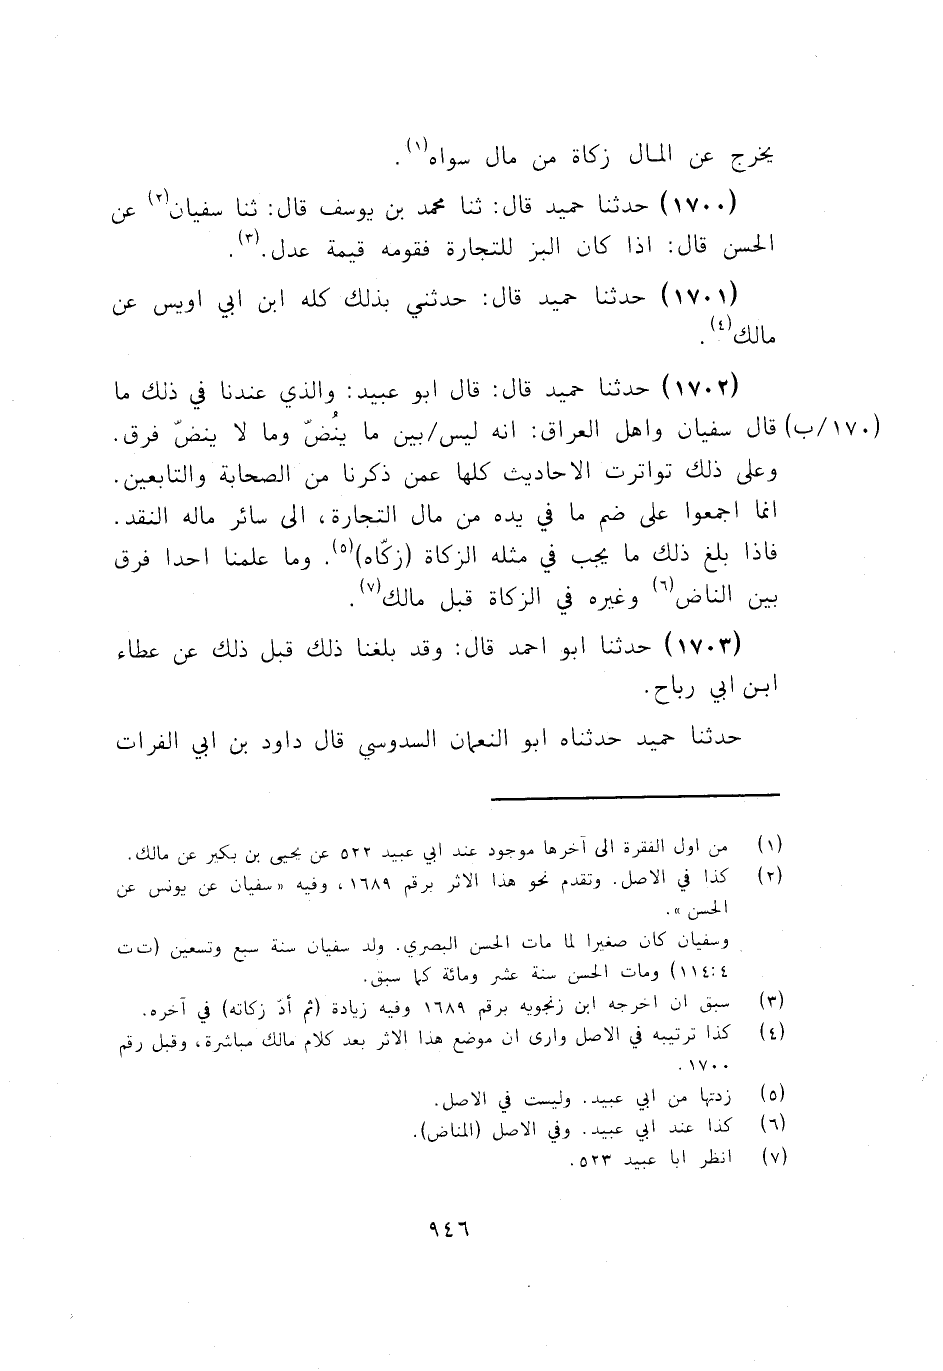 يخرج عن المال زكاة من مال سواه(١).
(١٧٠٠) حدثنا حميد قال: ثنا محمد بن يوسف قال: ثنا سفيان(٢) عن
الحسن قال: اذا كان البز للتجارة فقومه قيمة عدل.(٣).
(١٧٠١) حدثنا حميد قال: حدثني بذلك كله ابن ابي اويس عن
مالك(٤).
(١٧٠٢) حدثنا حميد قال: قال ابو عبيد: والذي عندنا في ذلك ما
(١٧٠/ب) قال سفيان واهل العراق: انه ليس/بين ما ينُضّ وما لا ينضّ فرق.
وعلى ذلك تواترت الاحاديث كلها عمن ذكرنا من الصحابة والتابعين.
انما اجمعوا على ضم ما في يده من مال التجارة، الى سائر ماله النقد.
فاذا بلغ ذلك ما يجب في مثله الزكاة (زكّاه)(٥). وما علمنا احدا فرق
بين الناض(٦) وغيره في الزكاة قبل مالك(٧).
(١٧٠٣) حدثنا ابو احمد قال: وقد بلغنا ذلك قبل ذلك عن عطاء
ابن ابي رباح.
حدثنا حميد حدثناه ابو النعمان السدوسي قال داود بن ابي الفرات
(١) من اول الفقرة الى آخرها موجود عند ابي عبيد ٥٢٢ عن يحيى بن بكير عن مالك.
(٢) كذا في الاصل. وتقدم نحو هذا الاثر برقم ١٦٨٩، وفيه «سفيان عن يونس عن
الحسن».
وسفيان كان صغيرا لما مات الحسن البصري. ولد سفيان سنة سبع وتسعين (ت ت
١١٤:٤) ومات الحسن سنة عشر ومائة كما سبق.
(٣) سبق ان اخرجه ابن زنجويه برقم ١٦٨٩ وفيه زيادة (ثم أدّ زكاته) في آخره.
(٤) كذا ترتيبه في الاصل وارى ان موضع هذا الاثر بعد كلام مالك مباشرة، وقبل رقم
١٧٠٠.
(٥) زدتها من ابي عبيد. وليست في الاصل.
(٦) كذا عند ابي عبيد. وفي الاصل (المناض).
(٧) انظر ابا عبيد ٥٢٣.
٩٤٦